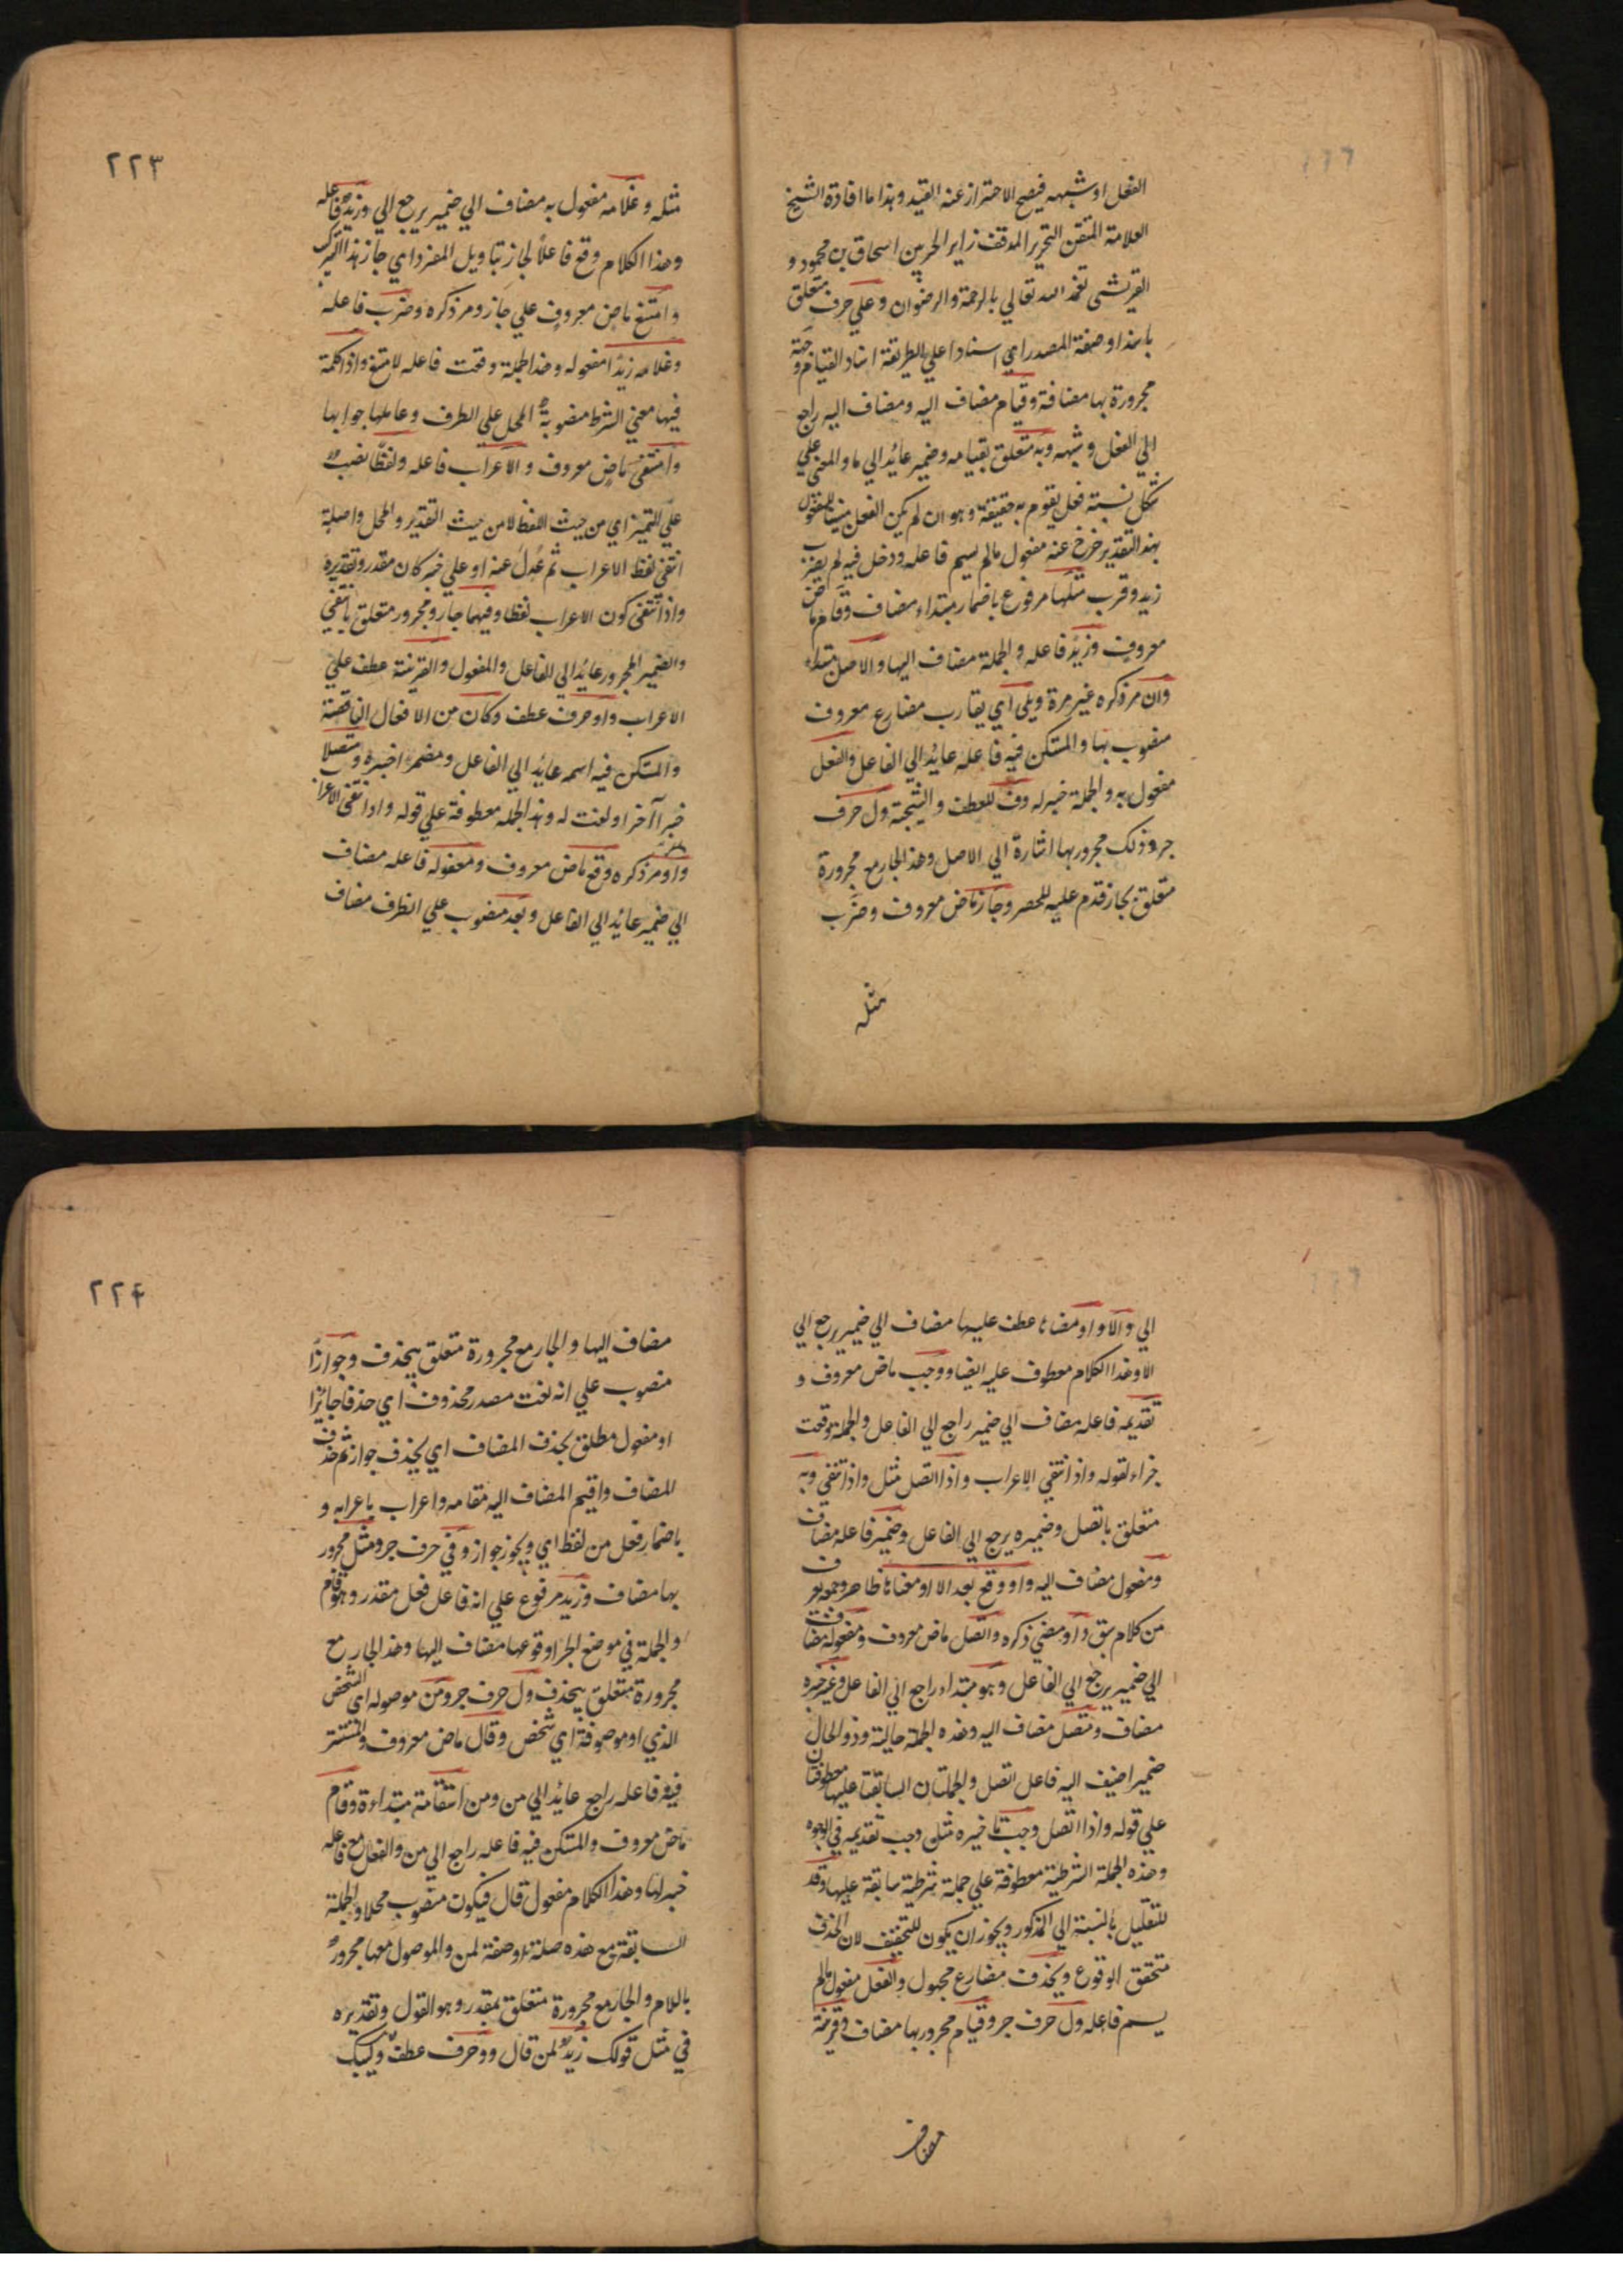 الفعل او شبهه فيصح الاحتراز عنه القيد وهذا ما افادة الشيخ
العلامة المتقن النحرير المدقق زاير الحرمين اسحاق بن محمود و
القريشى تغمد الله تعالي بالرحمة والرضوان وعلي حرف متعلق
باسنداو صفة المصدر اي اسنادا علي الطريقة اسناد القيام و جهة
مجرورة بها مضافة وقيام مضاف اليه ومضاف اليه راجع
الي الفعل وشبهه وبه متعلق بقيامه وضمير عايد الي ما والمعني علي
شكل نسبة فعل يقوم به حقيقة وهو ان لم يكن الفعل مبنيا للمفعول
بهذ التقدير خرج عنه مفعول مالم يسم فاعله ودخل فيه لم يضرب
زيد وقرب مثلها مرفوع باضمار مبتداء مضاف وقام ماض
معروف وزيد فاعله والجملة مضاف اليها والاصل مبتداء
وان مر ذكره غير مرة ويلى اي يقارب مضارع معروف
منصوب بها والمستكن فيه فاعله عايد الي الفاعل والفعل
مفعول به والجملة خبر له وف للعطف والنتيجة ول حرف
جر وذلك مجرور بها اشارة الي الاصل وهذ الجار مع مجرورة
متعلق بجاز قدم عليه للحصر وجاز ماض معروف وضرب
مثله
٢٢٣
مثله وغلامه مفعول به مضاف الي ضمير يرجع الي وزيد فاعله
وهذا الكلام وقع فاعلا لجاز بتاويل المفرد اي جاز هذا التركيب
وامتنع ماض معروف علي جاز ومر ذكره وضرب فاعله
وغلامه زيدا مفعوله وهذ الجملة وقعت فاعله لامتنع واذ اكلمة
فيها معني الشرط منصوبة المحل علي الظرف وعاملها جوابها
وانتفى ماض معروف والاعراب فاعله ولفظا نصب
علي التميز اي من حيث اللفظ لا من حيث التقدير والمحل واصله
انتفي لفظ الاعراب ثم عدل عنه او علي خبر كان مقدر وتقديره
واذا انتفى كون الاعراب لفظا وفيهما جار ومجرور متعلق بانتفي
والضمير المجرور عايد الي الفاعل والمفعول والقرينة عطف علي
الاعراب واو حرف عطف وكان من الافعال الناقصة
والمستكن فيه اسمه عايد الي الفاعل ومضمرا خبره ومتصلا
خبرا آخر او نعت له وهذ الجمله معطوفة علي قوله واذا انتفى الاعراب
واو مر ذكره وقع ماض معروف ومفعوله فاعله مضاف
الي ضمير عايد الي الفاعل وبعد منصوب علي الظرف مضاف
الي والا واو معناها عطف عليها مضاف الي ضمير يرجع الي
الا وهذا الكلام معطوف عليه ايضا ووجب ماض معروف و
تقديمه فاعله مضاف الي ضمير راجع الي الفاعل والجملة وقعت
جزاء لقوله واذ انتفي الاعراب واذا اتصل مثل واذ انتفي وبه
متعلق باتصل وضميره يرجع الي الفاعل وضمير فاعله مضاف
ومفعول مضاف اليه واو وقع بعد الا او معناها ظاهر وجهه يعرف
من كلام سبق واو مضي ذكره واتصل ماض معروف ومفعوله مضاف
الي ضمير يرجع الي الفاعل وهو مبتداء راجع الي الفاعل وغير خبره
مضاف ومتصل مضاف اليه وهذه الجملة حالية وذو الحال
ضمير اضيف اليه فاعل اتصل والجملتان السابقتا عليها معطوفتان
علي قوله واذا اتصل وجب تاخيره مثل وجب تقديمه في الوجوه
وهذه الجملة الشرطية معطوفة علي جملة شرطية سابقة عليها وقد
للتقليل بالنسبة الي المذكور ويجوز ان يكون للتحقيق لان الحذف
متحقق الوقوع ويحذف مضارع مجهول والفعل مفعول مالم
يسم فاعله ول حرف جر وقيام مجرور بها مضاف وقرينة
مضاف
٢٢٤
مضاف اليها والجار مع مجرورة متعلق بيحذف وجوازا
منصوب علي انه نعت مصدر محذوف اي حذفا جائزا
او مفعول مطلق بحذف المضاف اي يحذف جواز ثم حذف
المضاف واقيم المضاف اليه مقامه واعراب باعرابه و
باضمار فعل من لفظ اي ويجوز جواز وفي حرف جر ومثل مجرور
بها مضاف وزيد مرفوع علي انه فاعل فعل مقدر وهو قام
والجملة في موضع الجر لوقوعها مضاف اليها وهذ الجار مع
مجرورة متعلق بيحذف ول حرف جر ومن موصوله اي الشخص
الذي او موصوفة اي شخص وقال ماض معروف والمستتر
فيه فاعله راجع عايد الي من ومن استفامة مبتداءة وقام
ماض معروف والمستكن فيه فاعله راجع الي من والفعل مع فاعله
خبر لها وهذا الكلام مفعول قال فيكون منصوب محلا والجملة
السابقة مع هذه صلة او صفة لمن والموصول معها مجرور
باللام والجار مع مجرورة متعلق بمقدر وهو القول وتقديره
في مثل قولك زيد لمن قال وو حرف عطف وليبك